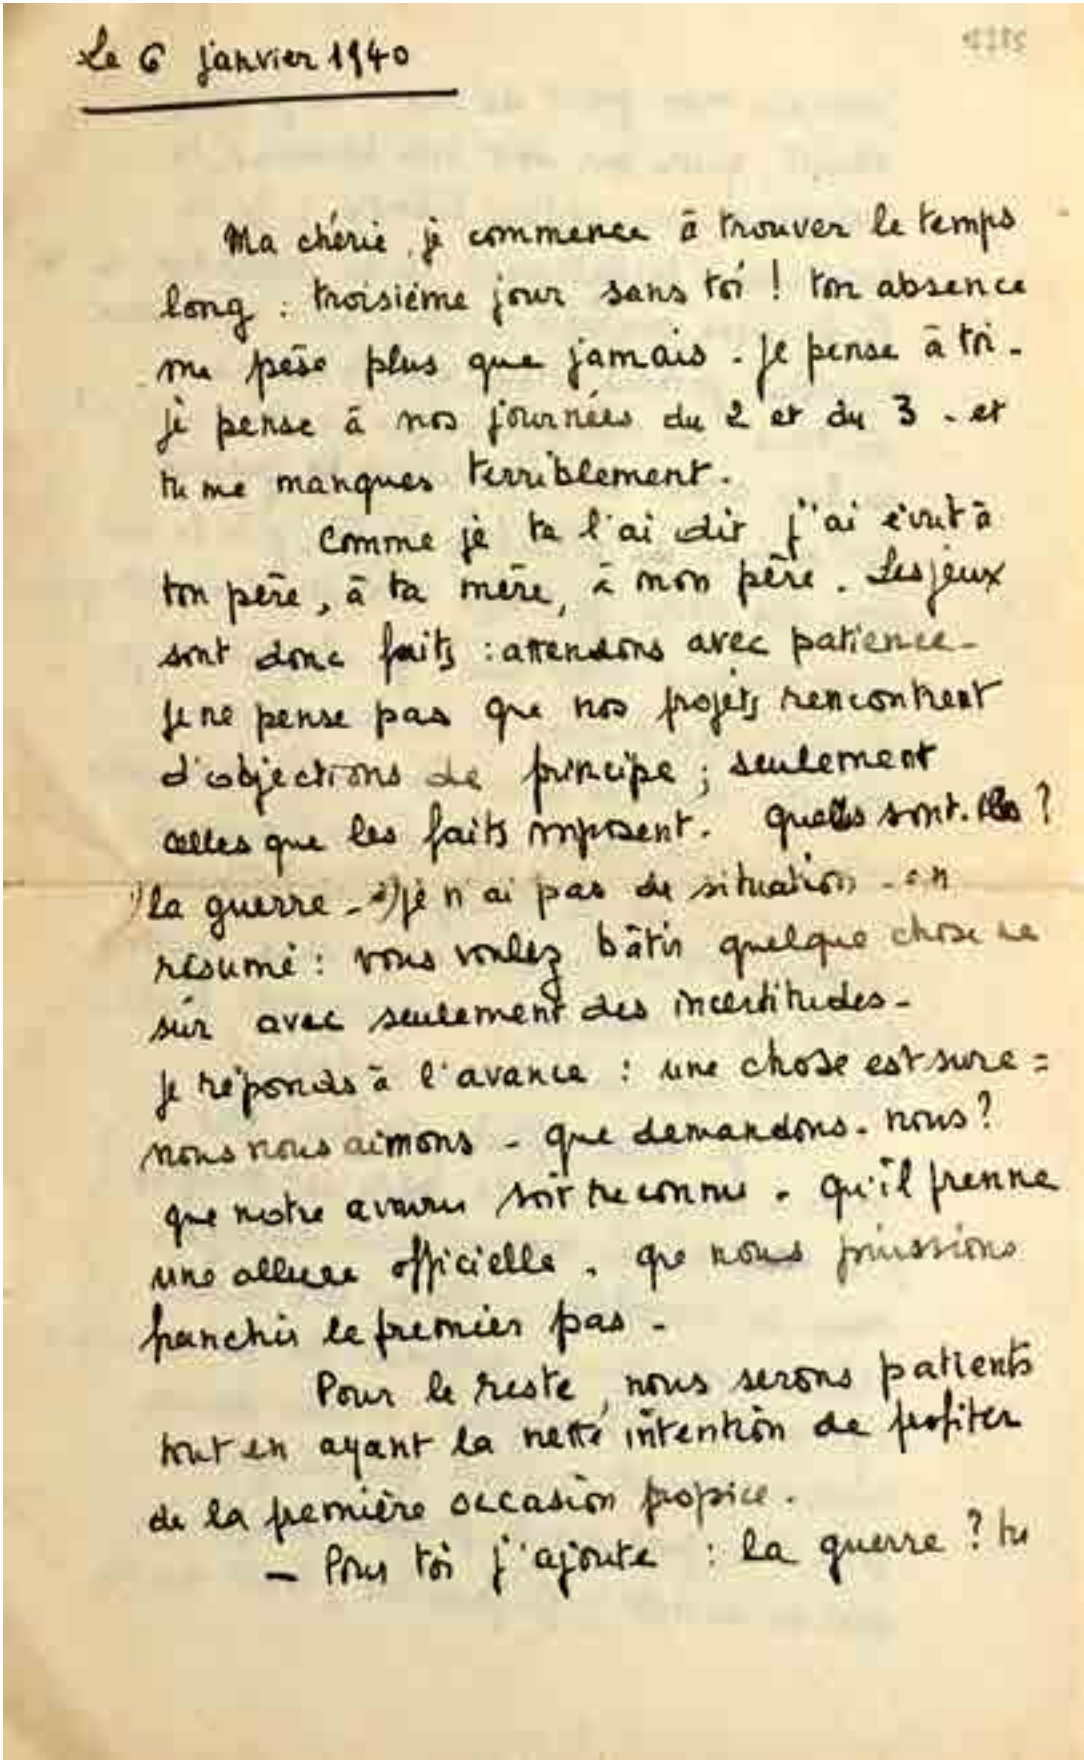 Le 6 janvier 1940
Ma chérie, je commence à trouver le temps
long : troisième jour sans toi ! ton absence
me pèse plus que jamais. Je pense à toi -
je pense à nos journées du 2 et du 3 - et
tu me manques terriblement.
Comme je te l'ai dit j'ai écrit à
ton père, à ta mère, à mon père. Les jeux
sont donc faits : attendons avec patience -
Je ne pense pas que nos projets rencontrent
d'objections de principe ; seulement
celles que les faits imposent. Quelles sont-elles ?
1) la guerre - 2) je n'ai pas de situation - en
résumé : vous voulez bâtir quelque chose de
sûr avec seulement des incertitudes -
je réponds à l'avance : une chose est sure =
nous nous aimons - que demandons-nous ?
que notre soit reconnu - qu'il prenne
une allure officielle - que nous puissions
franchir le premier pas -
Pour le reste, nous serons patients
tout en ayant la nette intention de profiter
de la première occasion propice.
- Pour toi j'ajoute : la guerre ? tu